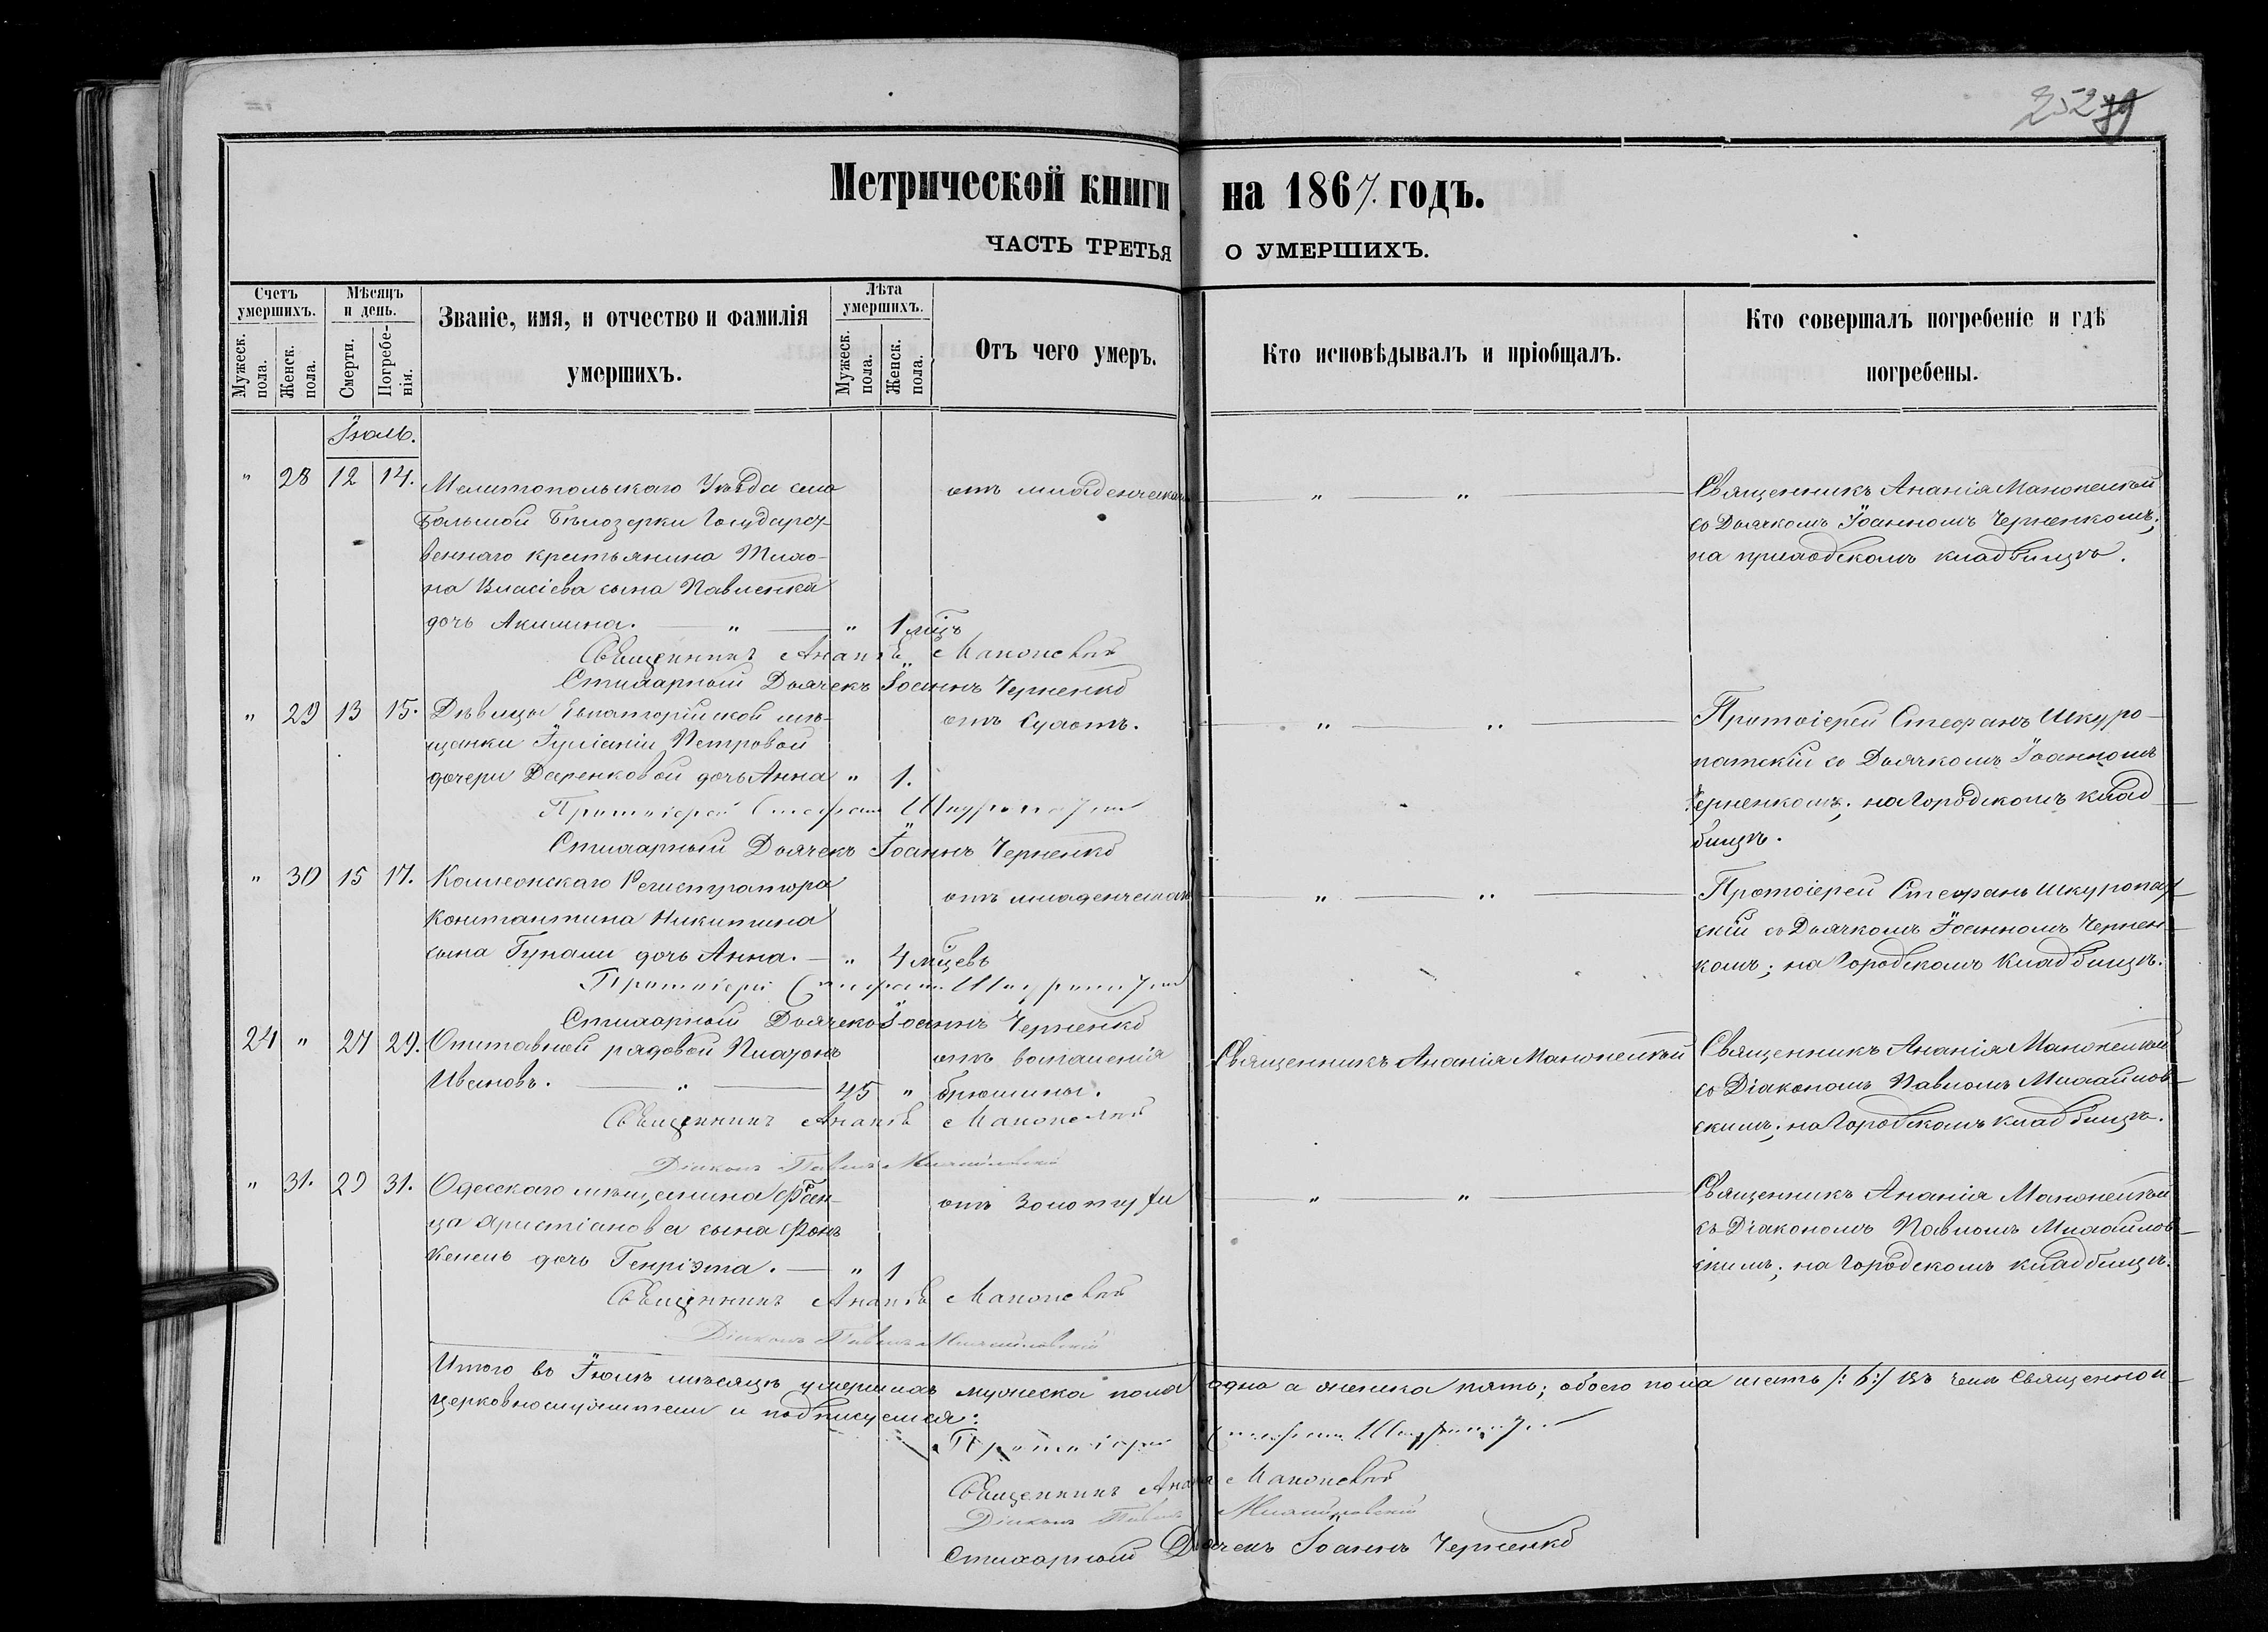 252 79
Метрической книги на 1867. годъ.
ЧАСТЬ ТРЕТЬЯ О УМЕРШИХЪ.
Счетъ умершихъ.
Мужеск. пола.
Женск. пола.
Мѣсяцъ и день.
Смерти.
Погребенія.
Званіе, имя, и отчество и фамилія умершихъ.
Лѣта умершихъ.
Мужеск. пола.
Женск. пола.
Отъ чего умеръ.
Кто исповѣдывалъ и пріобщалъ.
Кто совершалъ погребеніе и гдѣ погребены.
Іюль.
" 28 12 14.
Мелитопольскаго Уѣзда села
Большой Бѣлозерки Государст-
веннаго крестьянина
на Власіева сына Павленка
дочь Акилина. — " — " 1 мць
отъ младенческой
" "
Священникъ Ананія Манжелей
со Дьячкомъ Іоанномъ Черненкомъ;
на приходскомъ кладбищѣ.
Священникъ Ананія
Стихарный Дьячекъ Іоаннъ Черненко
" 29 13 15.
Дѣвицы Евпаторійской мѣ-
щанки Іуліаніи Петровой
дочери Даренковой дочь Анна " 1.
отъ сухотъ.
" "
Протоіерей Стефанъ Шкуро-
патскій со Дьячкомъ Іоанномъ
Черненкомъ; на Городскомъ клад-
бищѣ.
Протоіерей Стефанъ
Стихарный Дьячекъ Іоаннъ Черненко
" 30 15 17.
Коллежскаго Регистратора
Константина Никитина
сына Гунали дочь Анна. — " 4 мцевъ
отъ младенческой
" "
Протоіерей Стефанъ Шкуропат-
скій со Дьячкомъ Іоанномъ Чернен-
комъ; на Городскомъ кладбищѣ.
Протоіерей Стефанъ
Стихарный Дьячекъ Іоаннъ Черненко
24 " 27 29.
Отставной рядовой Платонъ
Ивановъ. — " — 45 "
отъ воспаленія
брюшины.
Священникъ Ананія
Священникъ Ананія
со Діакономъ Павломъ Михайлов-
скимъ; на Городскомъ кладбищѣ.
Священникъ Ананія
Діаконъ Павелъ Михайловскій
" 31. 29 31.
Одесскаго мѣщанина Фран-
ца Христіанова сына Фонъ
дочь Генріэта. — " 1
отъ золотухи
" "
Священникъ Ананія
съ Діакономъ Павломъ Михайлов-
скимъ; на Городскомъ кладбищѣ.
Священникъ Ананія
Діаконъ Павелъ Михайловскій
Итого въ Іюлѣ мѣсяцѣ умершихъ мужеска пола одно а женска пять; обоего пола шесть /:6:/ въ чемъ Священно и
церковнослужители и подписуемся:
Протоіерей Стефанъ
Священникъ Ананія
Діаконъ Павелъ Михайловскій
Стихарный Дьячекъ Іоаннъ Черненко